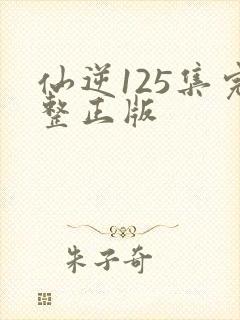 仙逆125集完
整正版
朱子奇